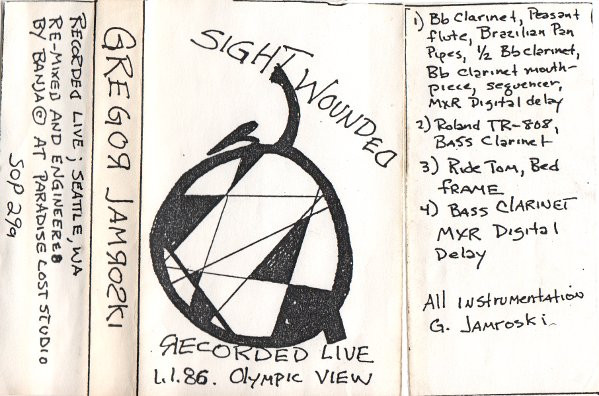 RECORDED LIVE; SEATTLE, WA
RE-MIXED AND ENGINEERED
BY BANJA@ AT PARADISE COST STUDIO
SOP 299
GREGOR JAMROSKI
SIGHT WOUNDED
RECORDED LIVE
1.1.86. OLYMPIC VIEW
1) Bb Clarinet, Peasant
flute, Brazilian Pan
Pipes, 1/2 Bb clarinet,
Bb Clarinet mouth-
piece, sequencer,
MXR Digital delay
2) Roland TR-808,
BASS Clarinet
3) Ride Tom, Bed
FRAME
4) BASS CLARINET
MXR Digital
Delay
All INstrumentation
G. Jamroski